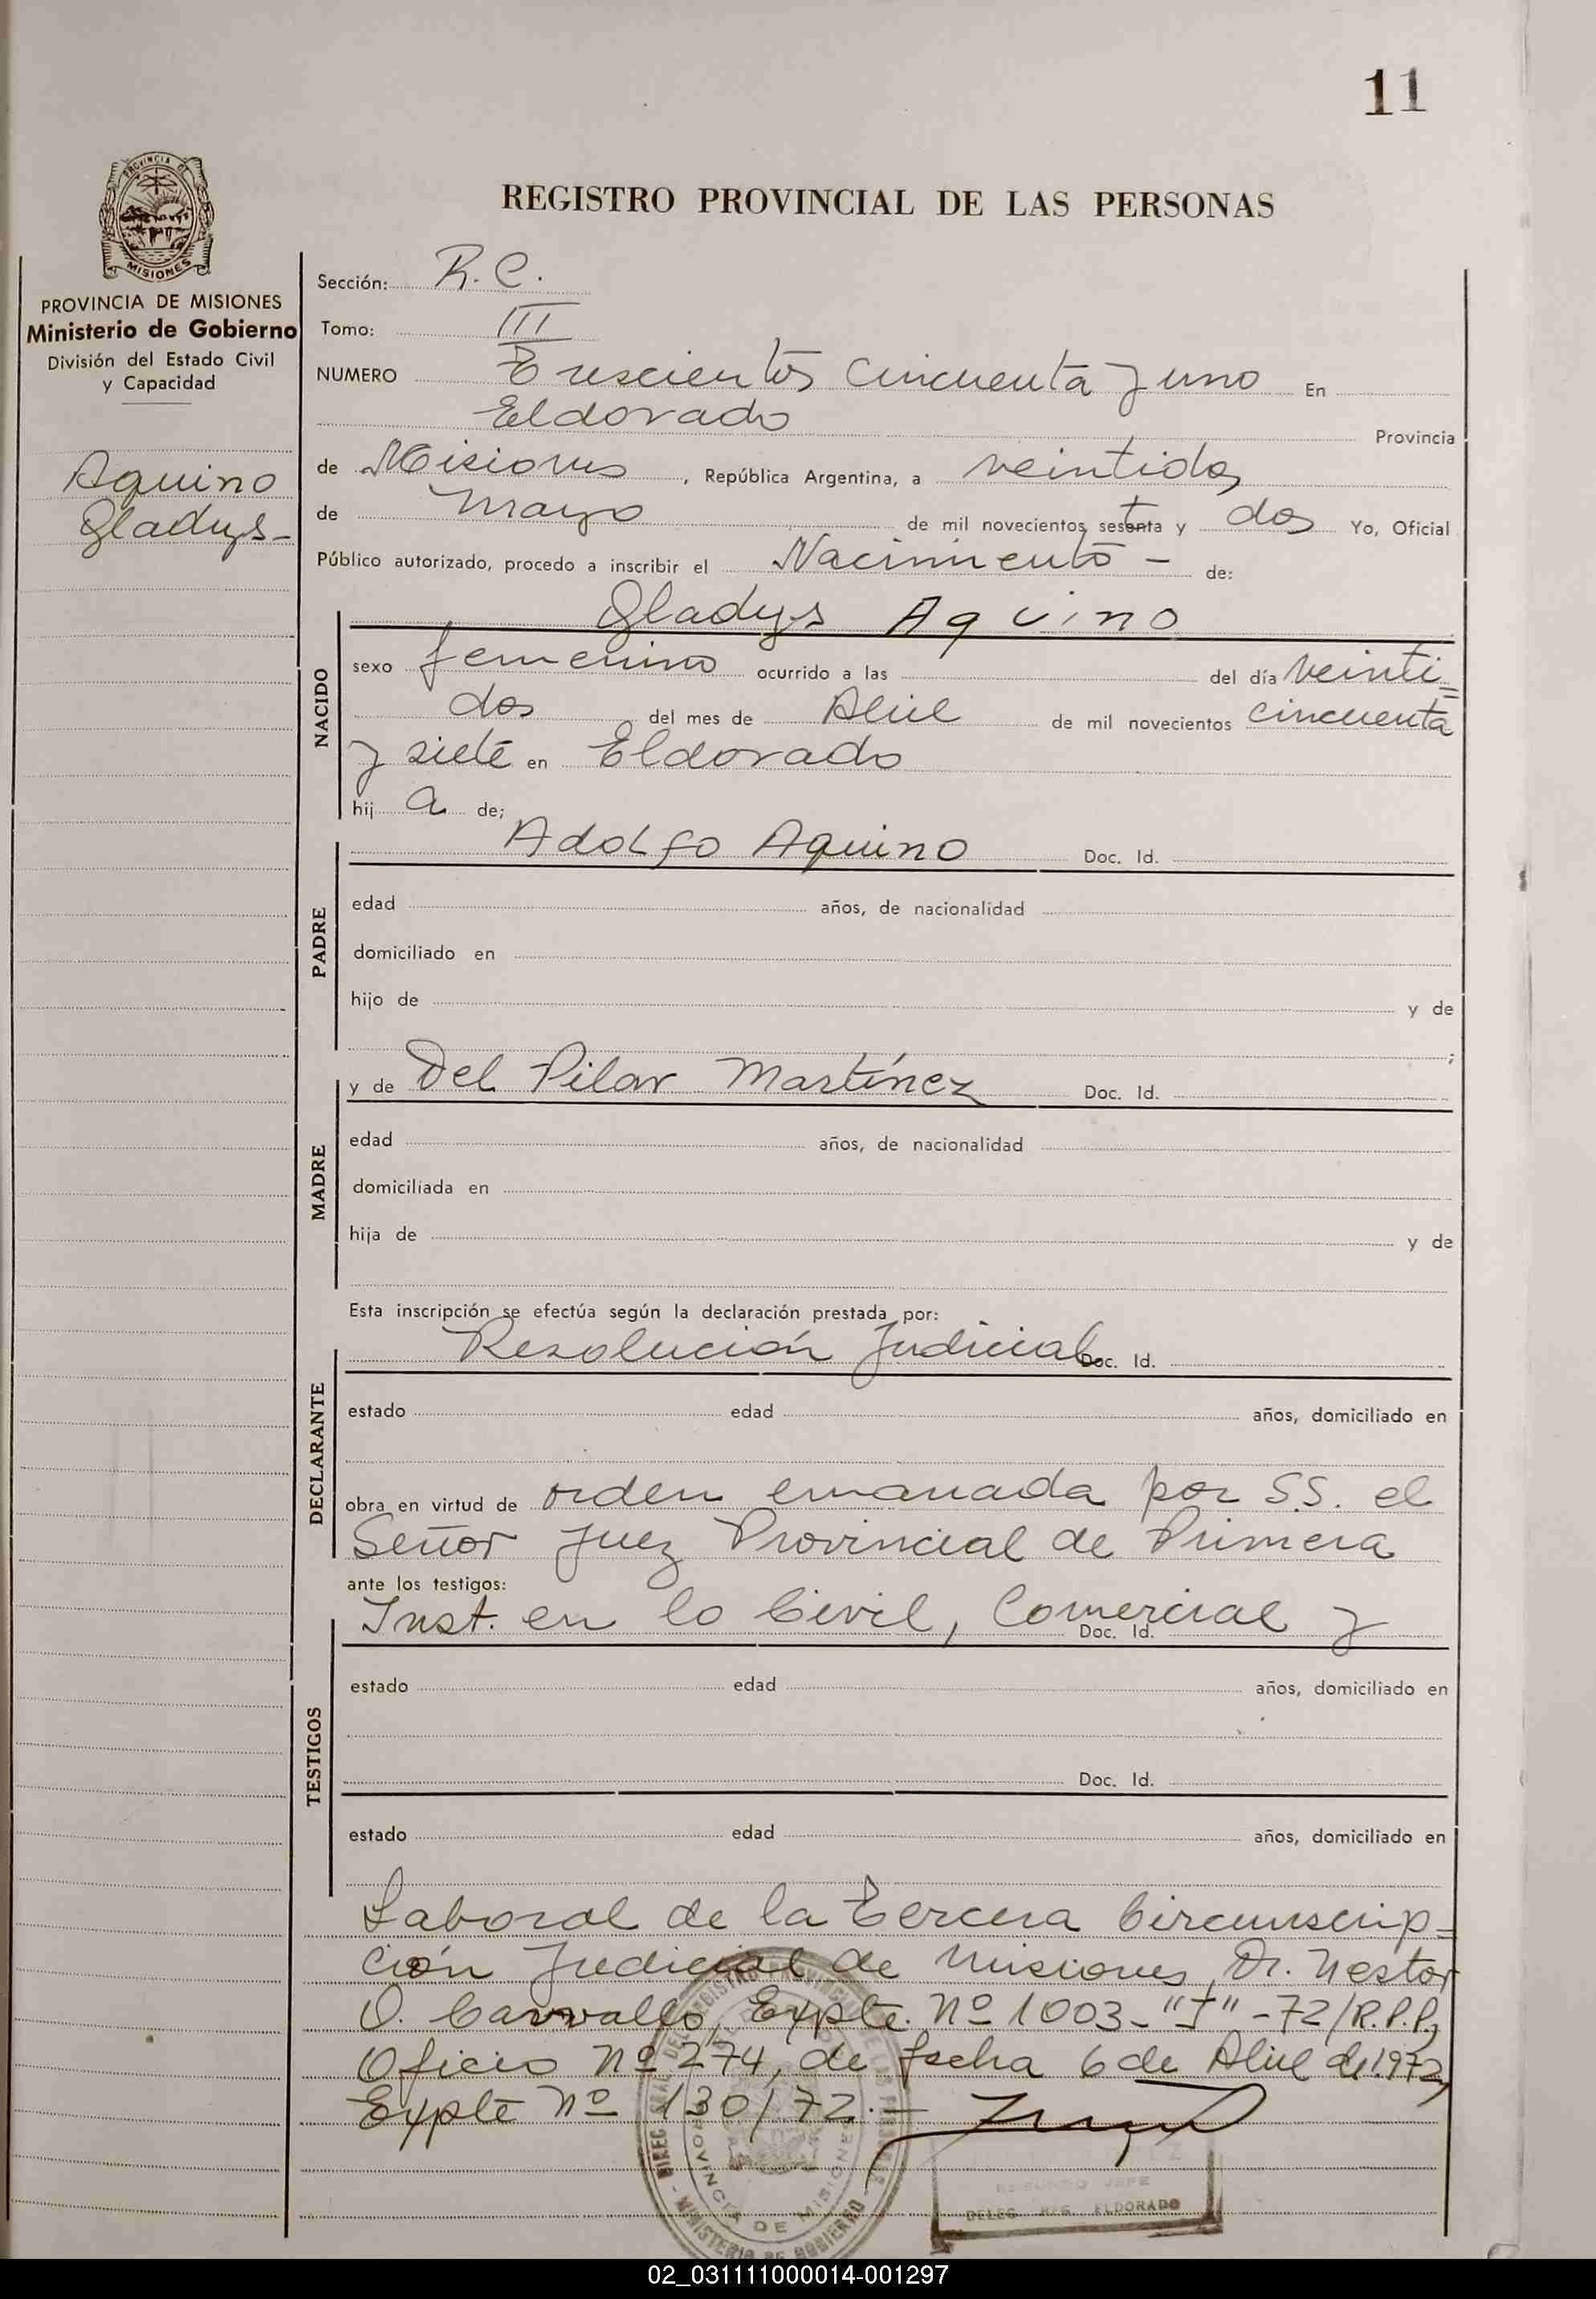 11
REGISTRO PROVINCIAL DE LAS PERSONAS
PROVINCIA DE MISIONES
Ministerio de Gobierno
División del Estado Civil
y Capacidad
Aquino
Gladys-
Sección: R. C.
Tomo: III
NUMERO Trescientos Cincuenta y uno En
Eldorado Provincia
de Misiones, República Argentina, a veintidos
de Mayo de mil novecientos setenta y dos Yo, Oficial
Público autorizado, procedo a inscribir el Nacimiento - de:
Gladys Aquino
NACIDO
sexo femenino ocurrido a las del día veinti=
dos del mes de Abril de mil novecientos cincuenta
y siete en Eldorado
hij a de;
PADRE
Adolfo Aquino Doc. Id.
edad años, de nacionalidad
domiciliado en
hijo de y de
;
MADRE
y de Del Pilar Martínez Doc. Id.
edad años, de nacionalidad
domiciliada en
hija de y de
Esta inscripción se efectúa según la declaración prestada por:
DECLARANTE
Resolución Judicial Doc. Id.
estado edad años, domiciliado en
obra en virtud de orden emanada por S.S. el
Señor Juez Provincial de Primera
ante los testigos:
Inst. en lo Civil, Comercial y
Doc. Id.
TESTIGOS
estado edad años, domiciliado en
Doc. Id.
estado edad años, domiciliado en
Laboral de la Tercera Circunscrip-
ción Judicial de Misiones, Dr. Nestor
O. Carvallo, Expte. Nº 1003-"J"-72/R.P.P,
Oficio Nº 274, de fecha 6 de Abril de 1972,
Expte Nº 130/72.-
PROVINCIA DE MISIONES
MINISTERIO DE GOBIERNO
JEFE
DELEG. REG. ELDORADO
02_031111000014-001297